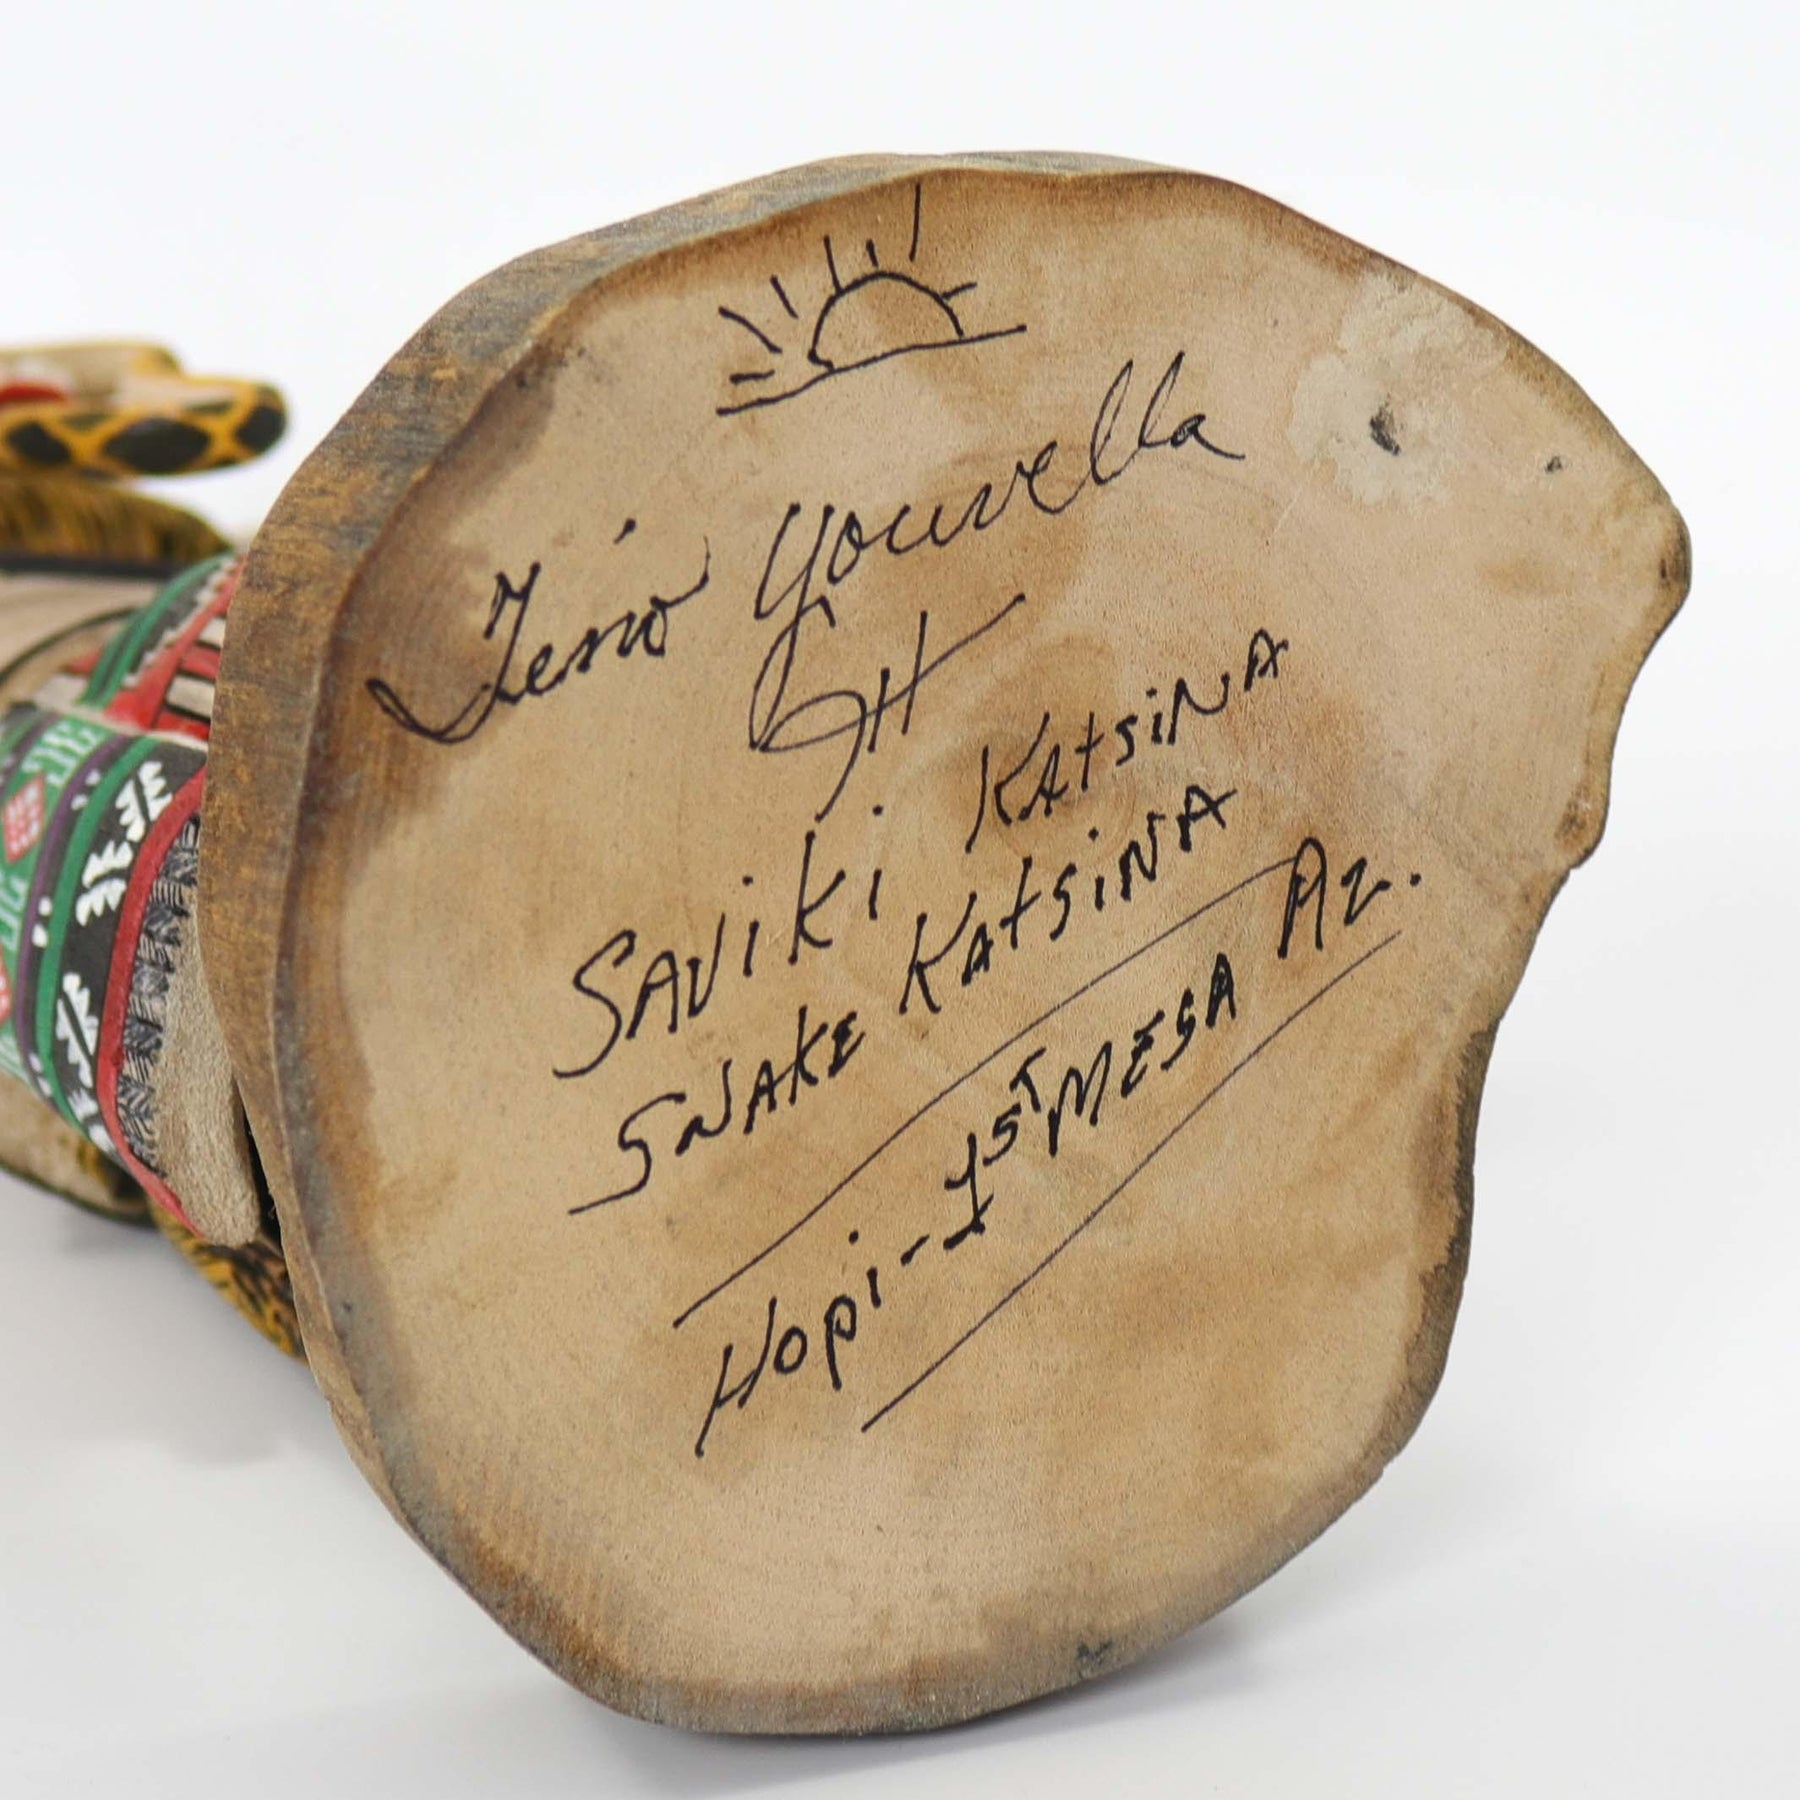 Teno Youvella
SAViKi KAtSiNA
SNAKE KAtSiNA
Hopi-1ST MESA Az.